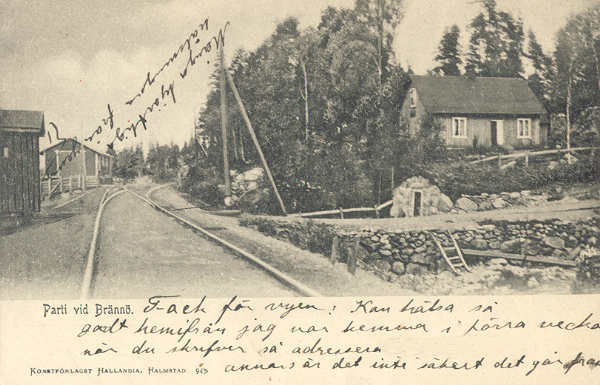 Många hjärtlig
hälsningar från
Parti vid Brännö.
Tack för vyen! Kan hälsa så
godt hemifrån jag var hemma i förra vecka
når du skrifver så adressera
annars är det inte säkert det går fram
KONSTFÖRLAGET HALLANDIA, HALMSTAD 945